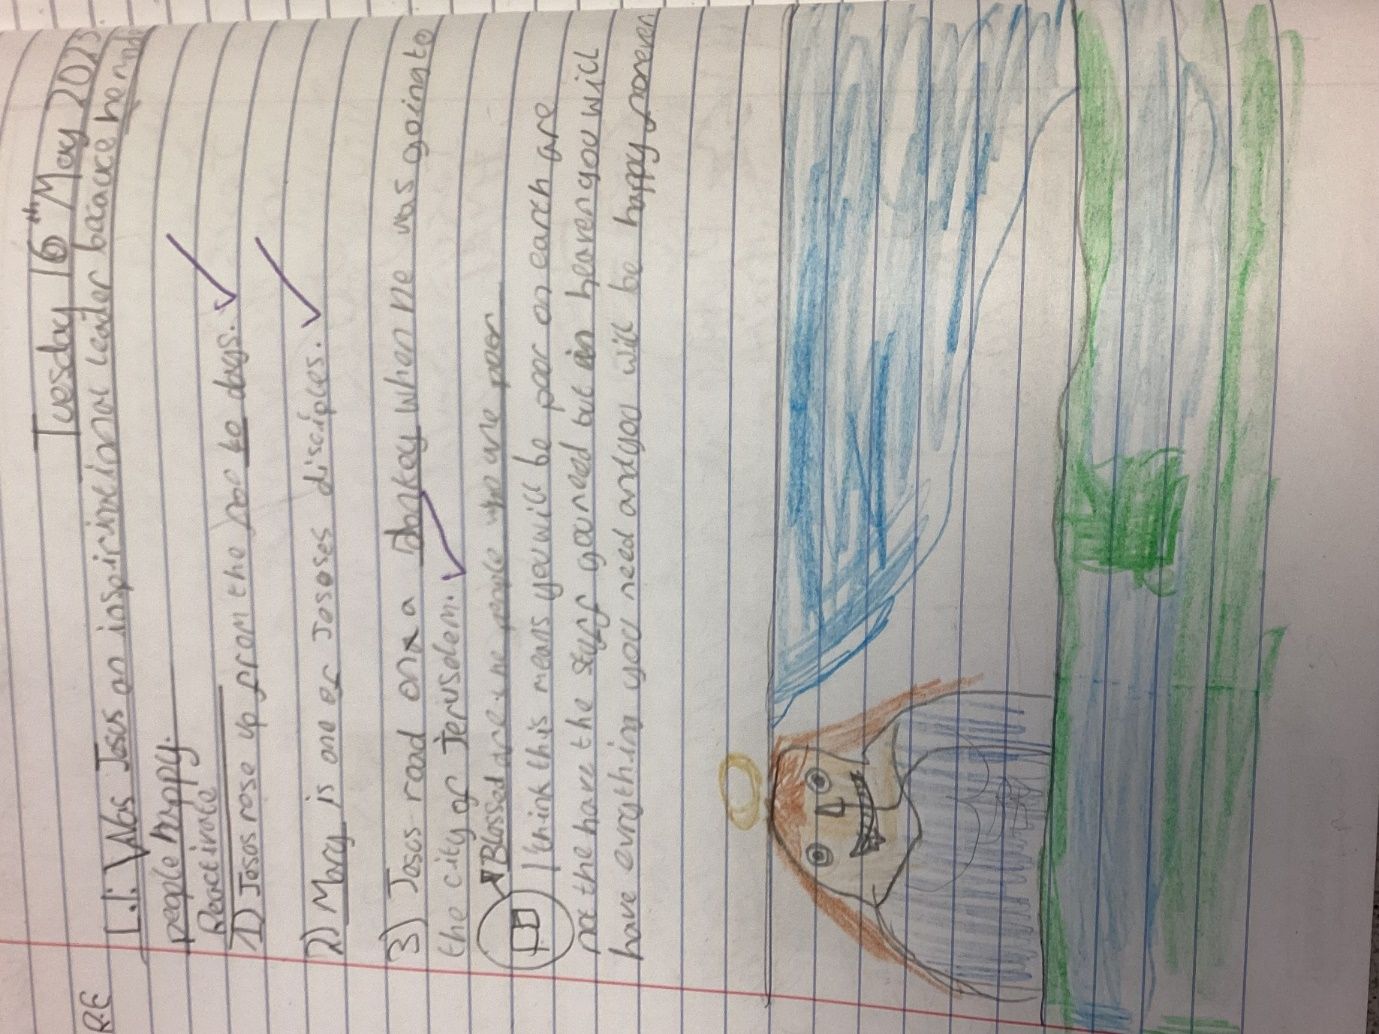 RE
Tuesday 16th May 2023
L.I: Was Jesus an inspirirational leader because he made
people happy.
Reactivate
1) Josos rose up from the
2) Mary is one of Jososes disciples.
3) Josos road on a donkey when he was going to
the city of Jerusdem.
"Blossed are the people who are poor
I think this means you will be poor on earth are
not the have the stuff you need but in heaven you will
have evrything you need and you will be happy forever